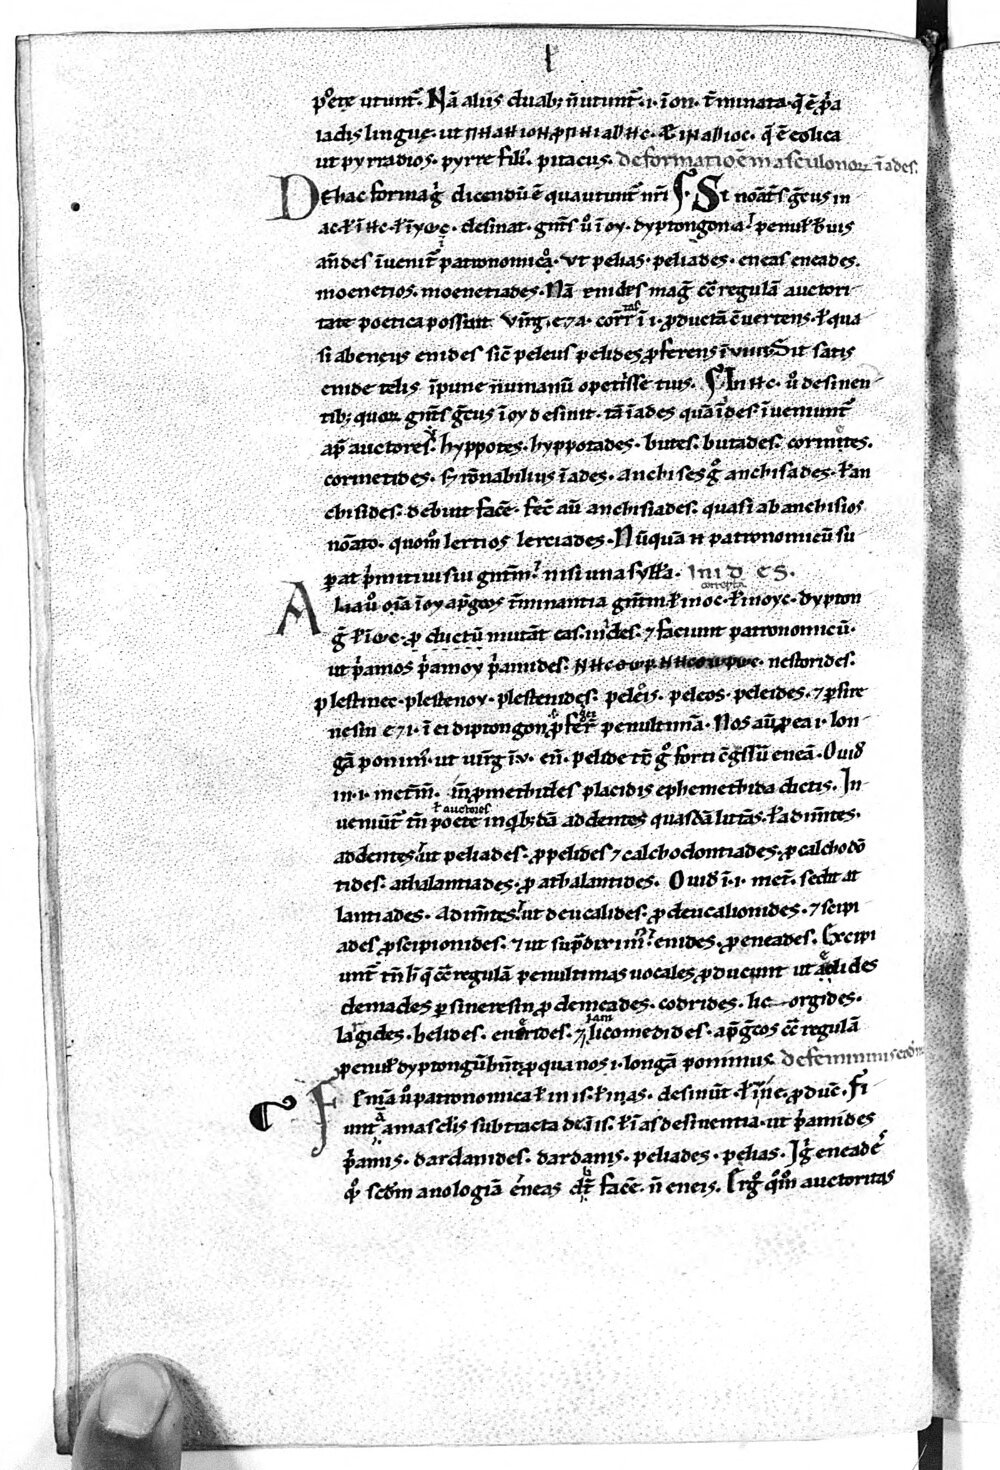 poetę utunt̄. Nā aliis duab; n̄ utunt̄ .i. ī on. t̄minata. q̄ ē p̄a
iadis linguę. ut . q̄ ē eolica
ut pyrradios. pyrre fili᷒. pitacus. de formatiōe masculonoꝝ ī ades.
De hac forma g̊ dicendū ē qua utunt̄ nr̄i. Si noāt̄s ḡcus in
desinat. gnt̄s ū ī oy. dyptongon. penul̄ b̄uis
an̄ des īuenit̄ patronomica. Ut pelias. peliades. eneas eneades.
moenetios. moenetiades. Nā enides maḡ cē regulā auctori
tate poetica possuit Virḡ. e ⁊ a. corr̄ ī .i. ꝓductā ūertens. ł qua
si ab eneus enides sic̄ peleus pelides ꝓferens ī viiii Sit satis
enide telis īpune numanū opetisse tuis. In ηc. ů desinen
tib; quoꝝ gnt̄s ḡcus ī oy desinit. tā ī ades quā ī des īueniunt̄
ap̄ auctores. hyppotes. hyppotades. butes. butades. cormetes.
cormetides. s; rōnabilius ī ades. anchises g̊ anchisades. ł an
chisides. debuit facē. fec̄ aū anchisiades. quasi ab anchisios
noāto. quom̊ lertios lerciades. Nūquā n̄ patronomicū su
ꝑat p̄mitiui sui gnt̄m nisi una syll̄a. In ides.
correpta
Alia ů oīa ī oy ap̄ ḡcos t̄minantia gnt̄m ł in oc. ł in oyc. dypton
ḡ ł ī ωc. ꝓductū mutāt eas. in des. ⁊ faciunt patronomicū.
ut p̄amos p̄amoy p̄amides. nestorides.
plestinec. plestenoy. plestenides. peleis. peleos. peleides. ⁊ ꝑ sine
resin e ⁊ i. ī ei diptongon ꝓfer̄ penultimā. Nos aū ꝑ ea i. lon
gā ponim᷒. ut uirḡ ī .v. en̄. pelide tc̄ g̊ forti cḡssū eneā. Ouid̄
in .i. metm̄. in̄ promethides placidis ephemethida dictis. In
ł auctores
ueniūt̄ tn̄ poetę in q̇b;dā addentes quasdā litt̄as. ł adim̄tes.
addentes. ut peliades. ꝓ pelides ⁊ calchodontiades. ꝓ calchodō
tides. athalantiades. ꝓ athalantides. Ouid̄ ī .i. met̄. sedit at
lantiades. Adim̄tes. ut deucalides. ꝓ deucalionides. ⁊ scipi
ades ꝓ scipionides. ⁊ ut sup̄ dixim᷒. enides. ꝓ eneades. Excipi
unt̄ tn̄ h̄ q̄ cc̄ regulā penultimas uocales ꝓducunt ut alides
demades ꝑ sineresin ꝓ demeades. codrides. lic orgides.
iam
lagides. belides. enerides. ⁊ licomedides. ap̄ ḡcos cc̄ regulā
penul̄ dyptongū hn̄t. ꝓ qua nos i. longā ponimus. de femininis eodem
Femīa ů patronomica ł in is. ł in as. desinūt. ł ī ne. ꝓduc̄. Fi
unt a masclis subtracta de. ī is. ł ī as desinentia. ut p̄amides
p̄amis. dardanides. dardanis. peliades. pelias. Ig̊ eneades
scd̄m anologiā eneas facē. n̄ eneis. auctoritas